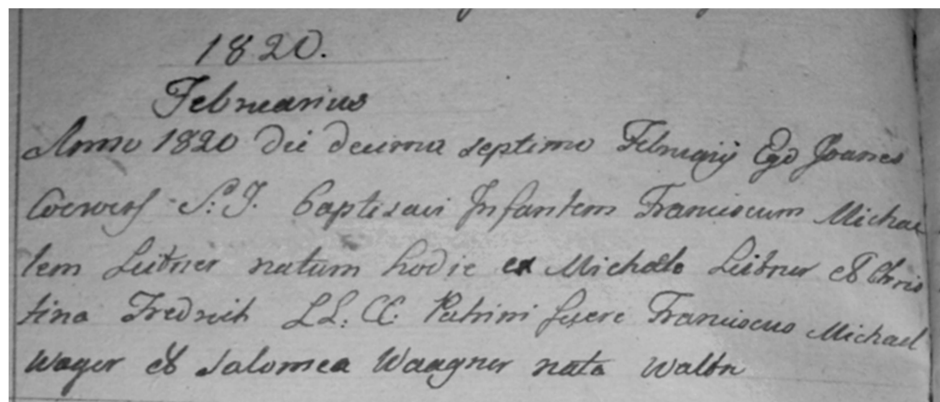 1820.
Februarius
Anno 1820 die decima septima Februarij Ego Joannes
S: J. Baptisavi Infantem Franciscum Michae
lem Leibner natum hodie ex Michaele Leibner et Chris
tina Fredrich LL: CC: Patrini fuere Franciscus Michael
Wager et Salomea Waagner nata